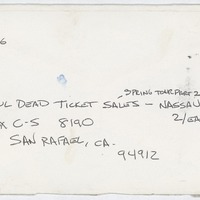 6
SPRING TOUR PART 2
UL DEAD TICKET SALES - NASSAU
X C-S 8190 2/EA
SAN RAFAEL, CA.
94912